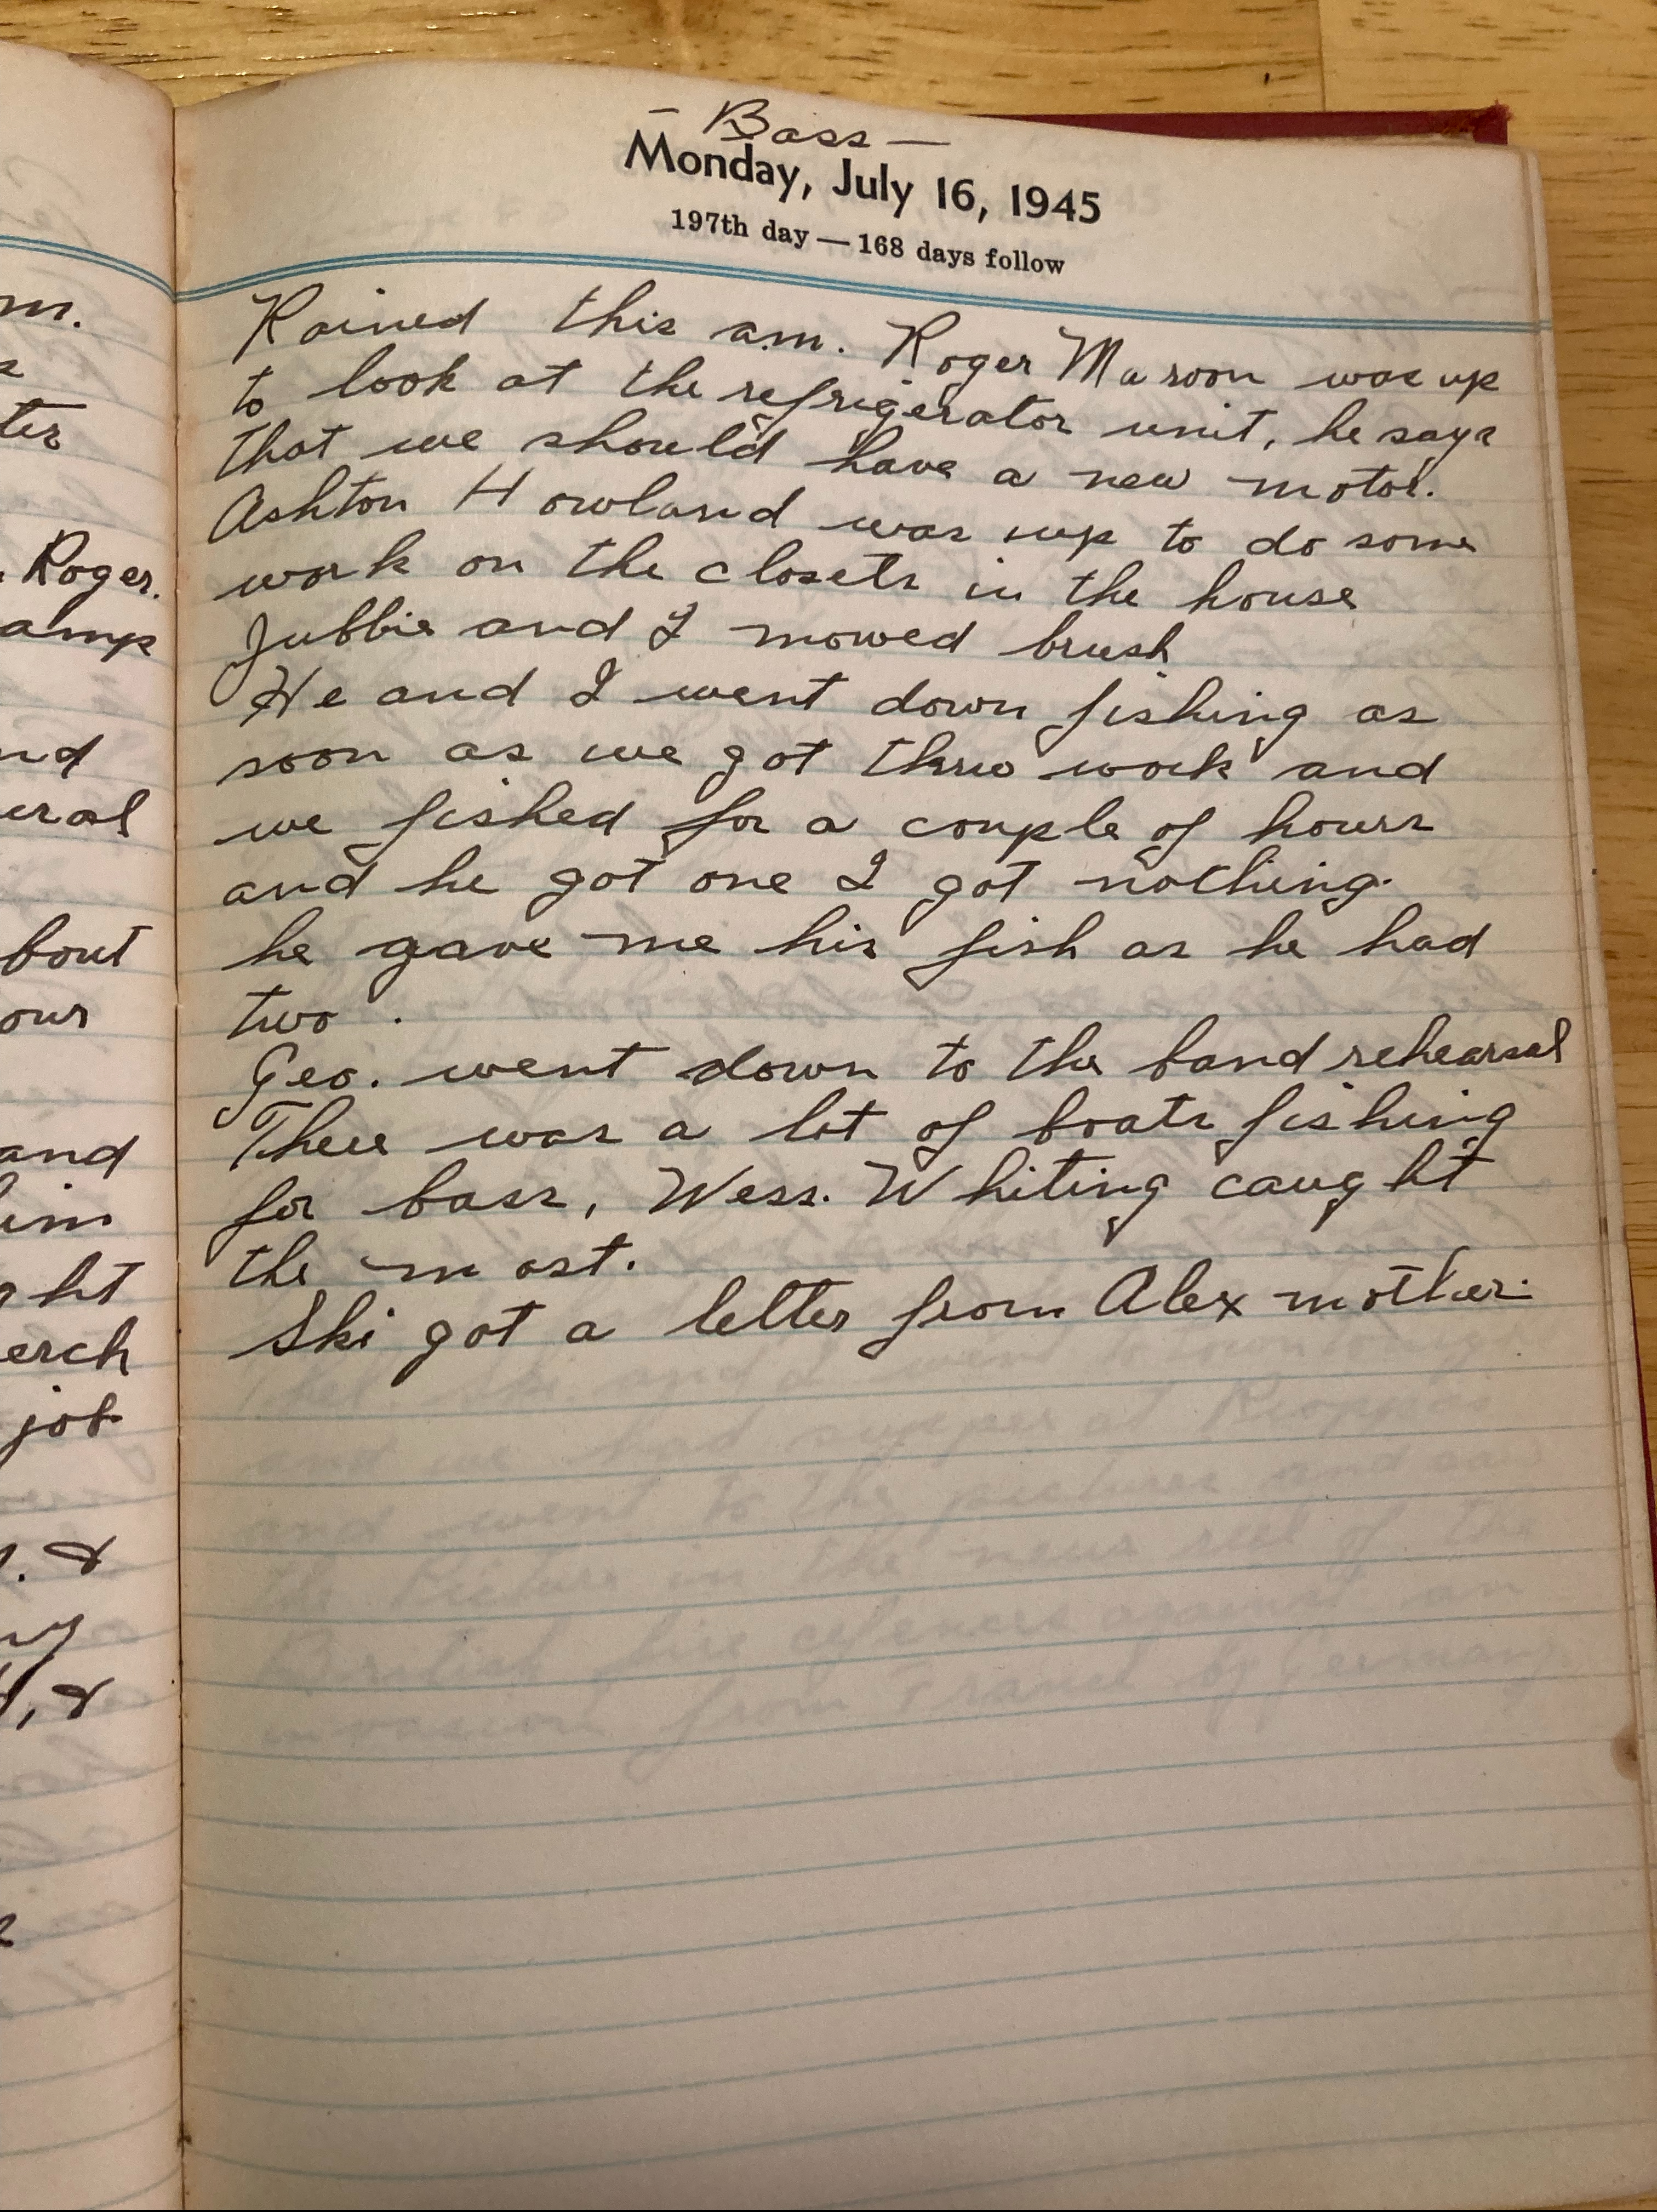 — Bass —
Monday, July 16, 1945
197th day — 168 days follow
Rained this a.m. Roger Masoon was up
to look at the refrigerator unit, he says
that we should have a new motor.
Ashton Howland was up to do some
work on the closets in the house
Jubbie and I mowed brush
He and I went down fishing as
soon as we got thruo work and
we fished for a couple of hours
and he got one I got nothing.
he gave me his fish as he had
two.
Geo. went down to the band rehearsal
There was a lot of boats fishing
for bass, Wess. Whiting caught
the most.
Ski got a letter from Alex mother.
m.
ter
Roger.
amp
nd
eral
bout
our
and
him
ght
erch
job
. &
, &